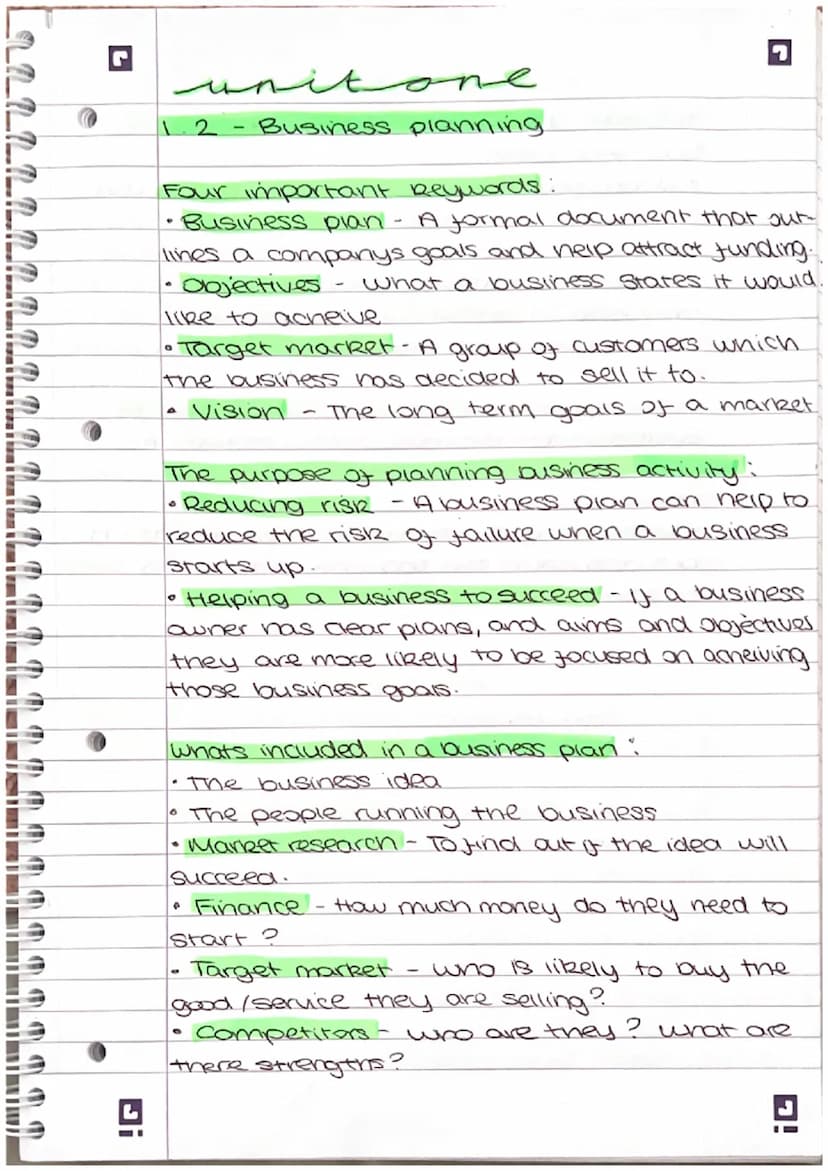 unit one
1.2 - Business planning
Four important keywords:
• Business plan - A formal document that out-
lines a companys goals and help attract funding.
• Objectives - what a business states it would
like to acheive
• Target market - A group of customers which
the business has decided to sell it to.
• Vision - The long term goals of a market
The purpose of planning business activity:
• Reducing risk - A business plan can help to
reduce the risk of failure when a business
starts up.
• Helping a business to succeed - If a business
owner has clear plans, and aims and objectives
they are more likely to be focused on acheiving
those business goals.
Whats included in a business plan:
• The business idea
• The people running the business
• Market research - To find out if the idea will
succeed.
• Finance - How much money do they need to
start?
• Target market - who is likely to buy the
good/service they are selling?
• Competitors - who are they? what are
there strengths?